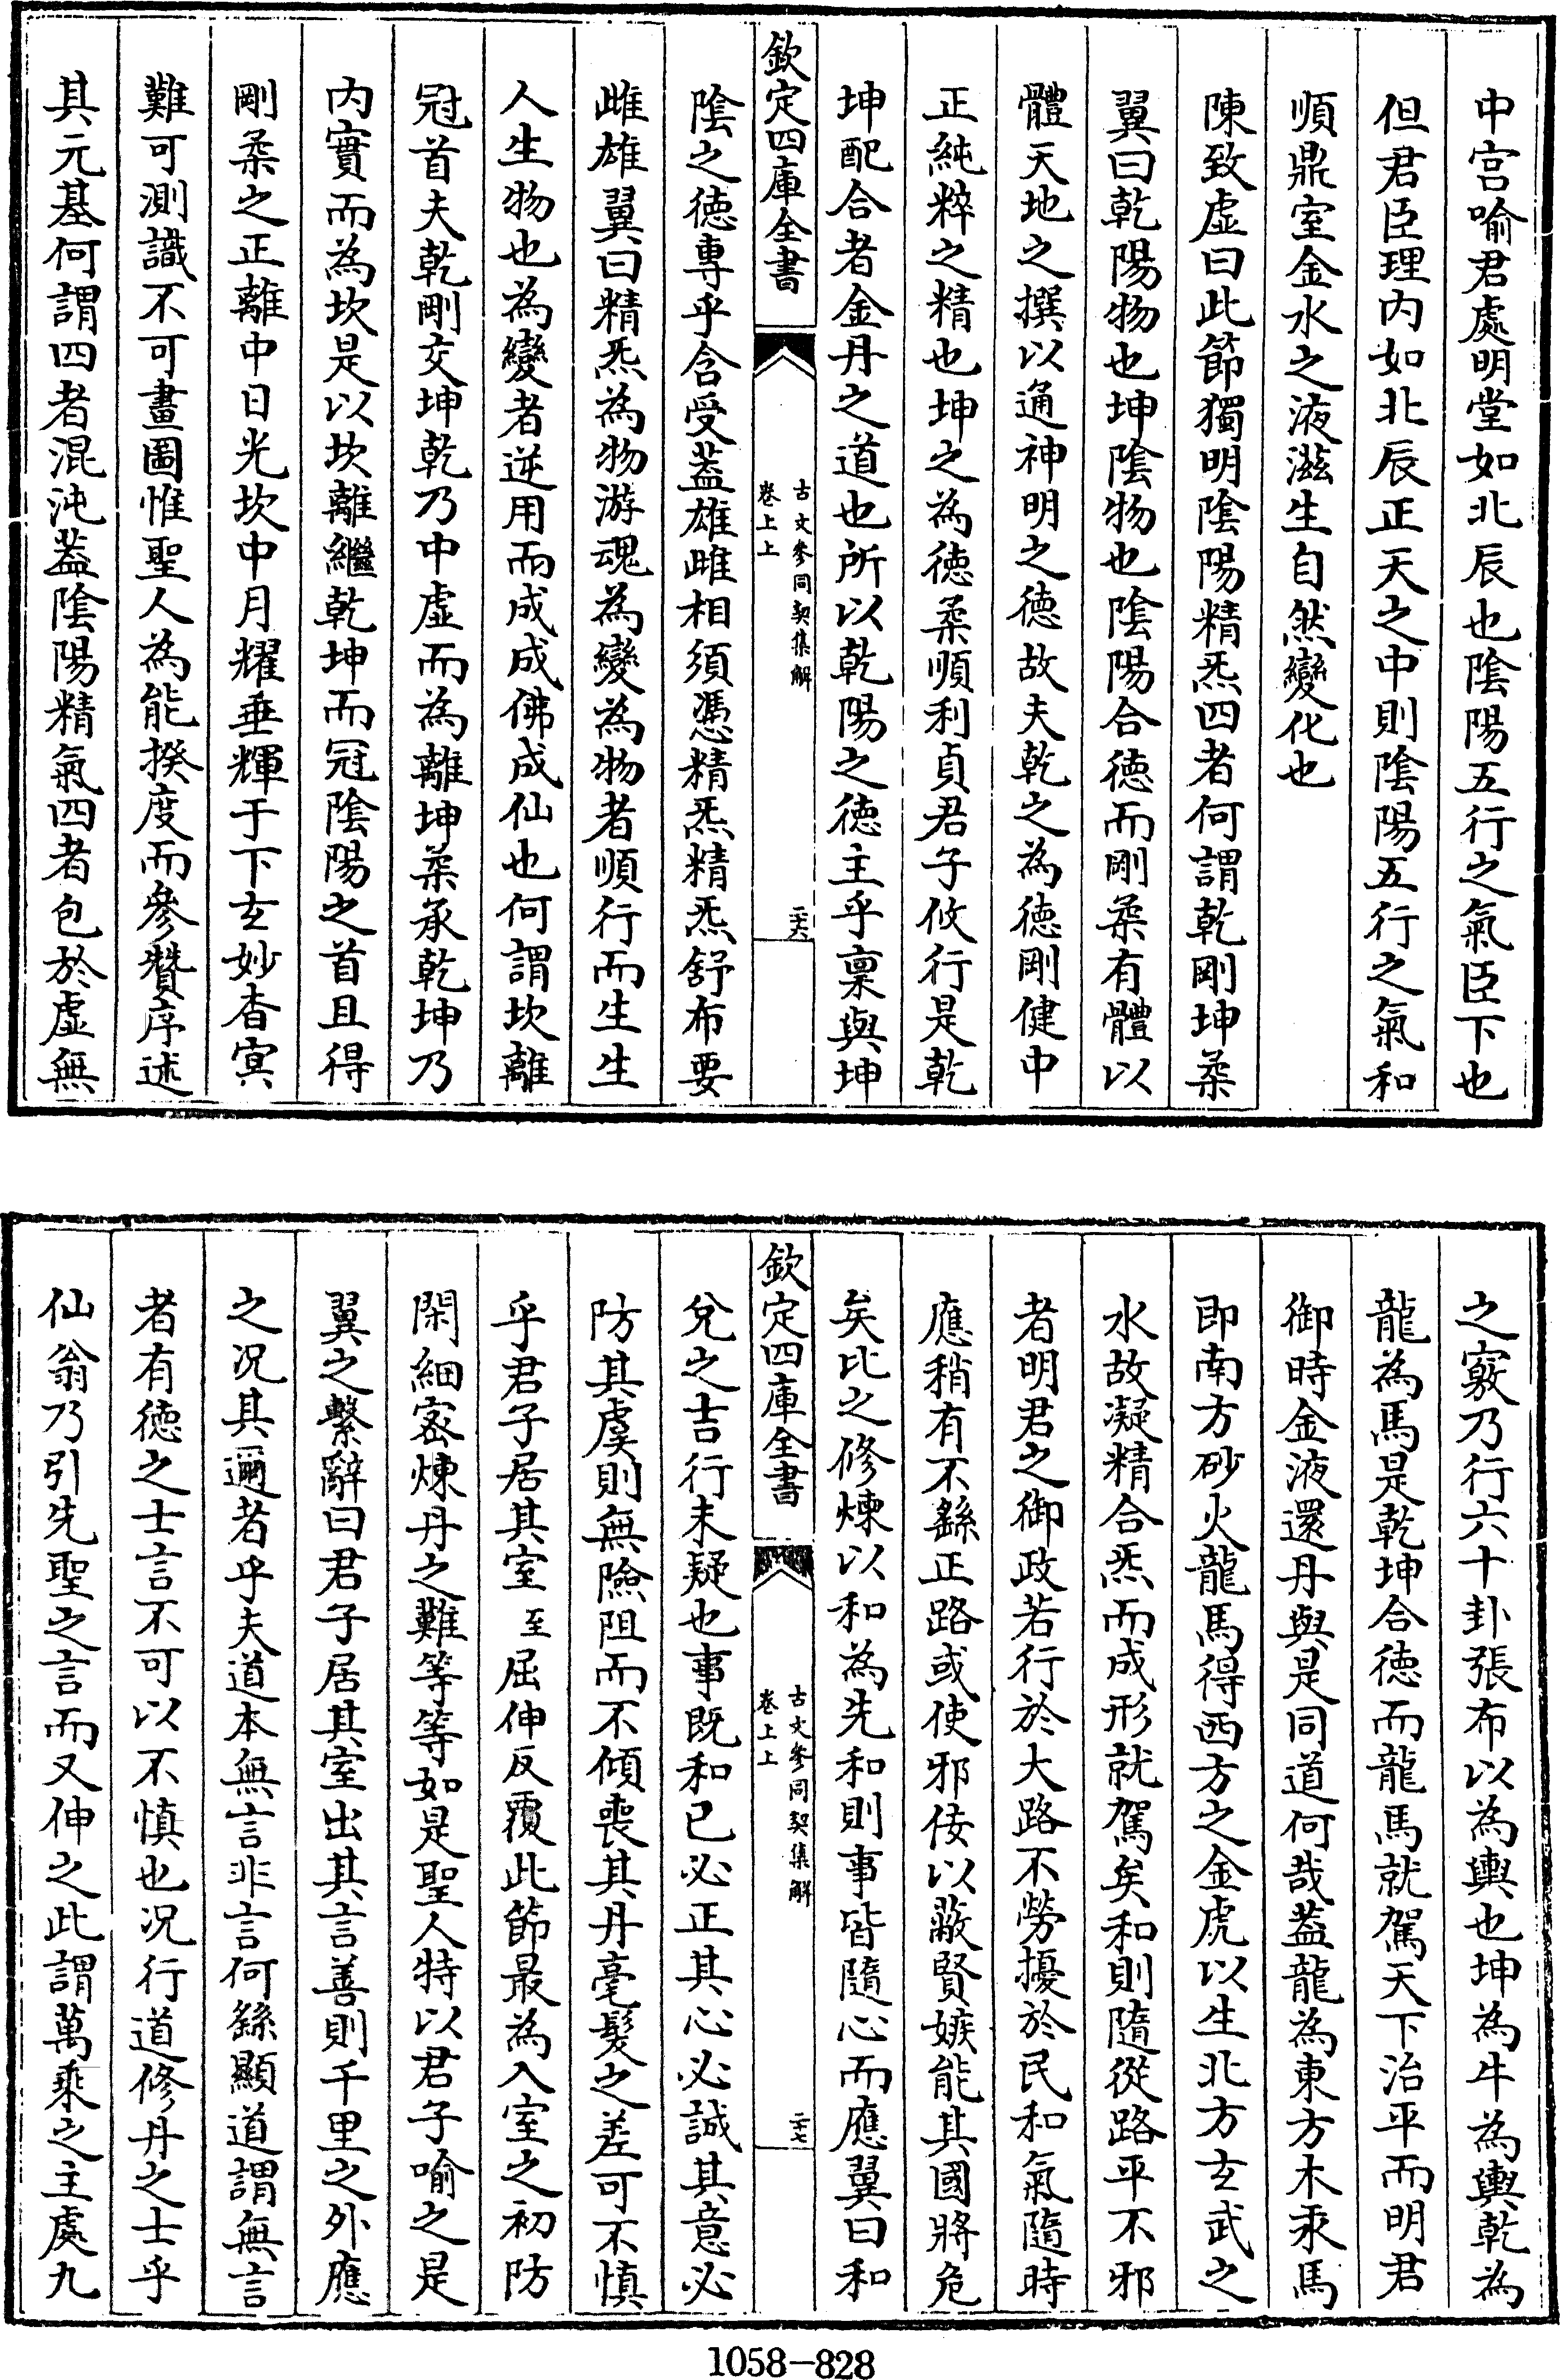 中宫喻君處明堂如北辰也隂陽五行之氣臣下也
但君臣理内如北辰正天之中則隂陽五行之氣和
順鼎室金水之液滋生自然變化也
陳致虚曰此節獨明隂陽精炁四者何謂乾剛坤柔
翼曰乾陽物也坤隂物也隂陽合徳而剛柔有體以
體天地之撰以通神明之徳故夫乾之為徳剛健中
正純粹之精也坤之為徳柔順利貞君子攸行是乾
坤配合者金丹之道也所以乾陽之徳主乎禀與坤
欽定四庫全書
古文參同契集解
卷上上
二十六
隂之徳專乎含受葢雄雌相須憑精炁精炁舒布要
雌雄翼曰精炁為物游魂為變為物者順行而生生
人生物也為變者逆用而成成佛成仙也何謂坎離
冠首夫乾剛交坤乾乃中虚而為離坤柔承乾坤乃
内實而為坎是以坎離繼乾坤而冠隂陽之首且得
剛柔之正離中日光坎中月耀垂輝于下玄妙杳冥
難可測識不可畫圖惟聖人為能揆度而參贊序述
其元基何謂四者混沌葢隂陽精氣四者包於虚無
之竅乃行六十卦張布以為輿也坤為牛為輿乾為
龍為馬是乾坤合徳而龍馬就駕天下治平而明君
御時金液還丹與是同道何哉葢龍為東方木汞馬
即南方砂火龍馬得西方之金虎以生北方玄武之
水故凝精合炁而成形就駕矣和則隨從路平不邪
者明君之御政若行於大路不勞擾於民和氣隨時
應稍有不繇正路或使邪佞以蔽賢嫉能其國將危
矣比之修煉以和為先和則事皆隨心而應翼曰和
欽定四庫全書
古文參同契集解
卷上上
二十七
兊之吉行未疑也事既和已必正其心必誠其意必
防其虞則無險阻而不傾喪其丹毫髮之差可不慎
乎君子居其室至屈伸反覆此節最為入室之初防
閑細宻煉丹之難等等如是聖人特以君子喻之是
翼之繫辭曰君子居其室出其言善則千里之外應
之况其邇者乎夫道本無言言非言何繇顯道謂無言
者有徳之士言不可以不慎也况行道修丹之士乎
仙翁乃引先聖之言而又伸之此謂萬乘之主處九
1058-828